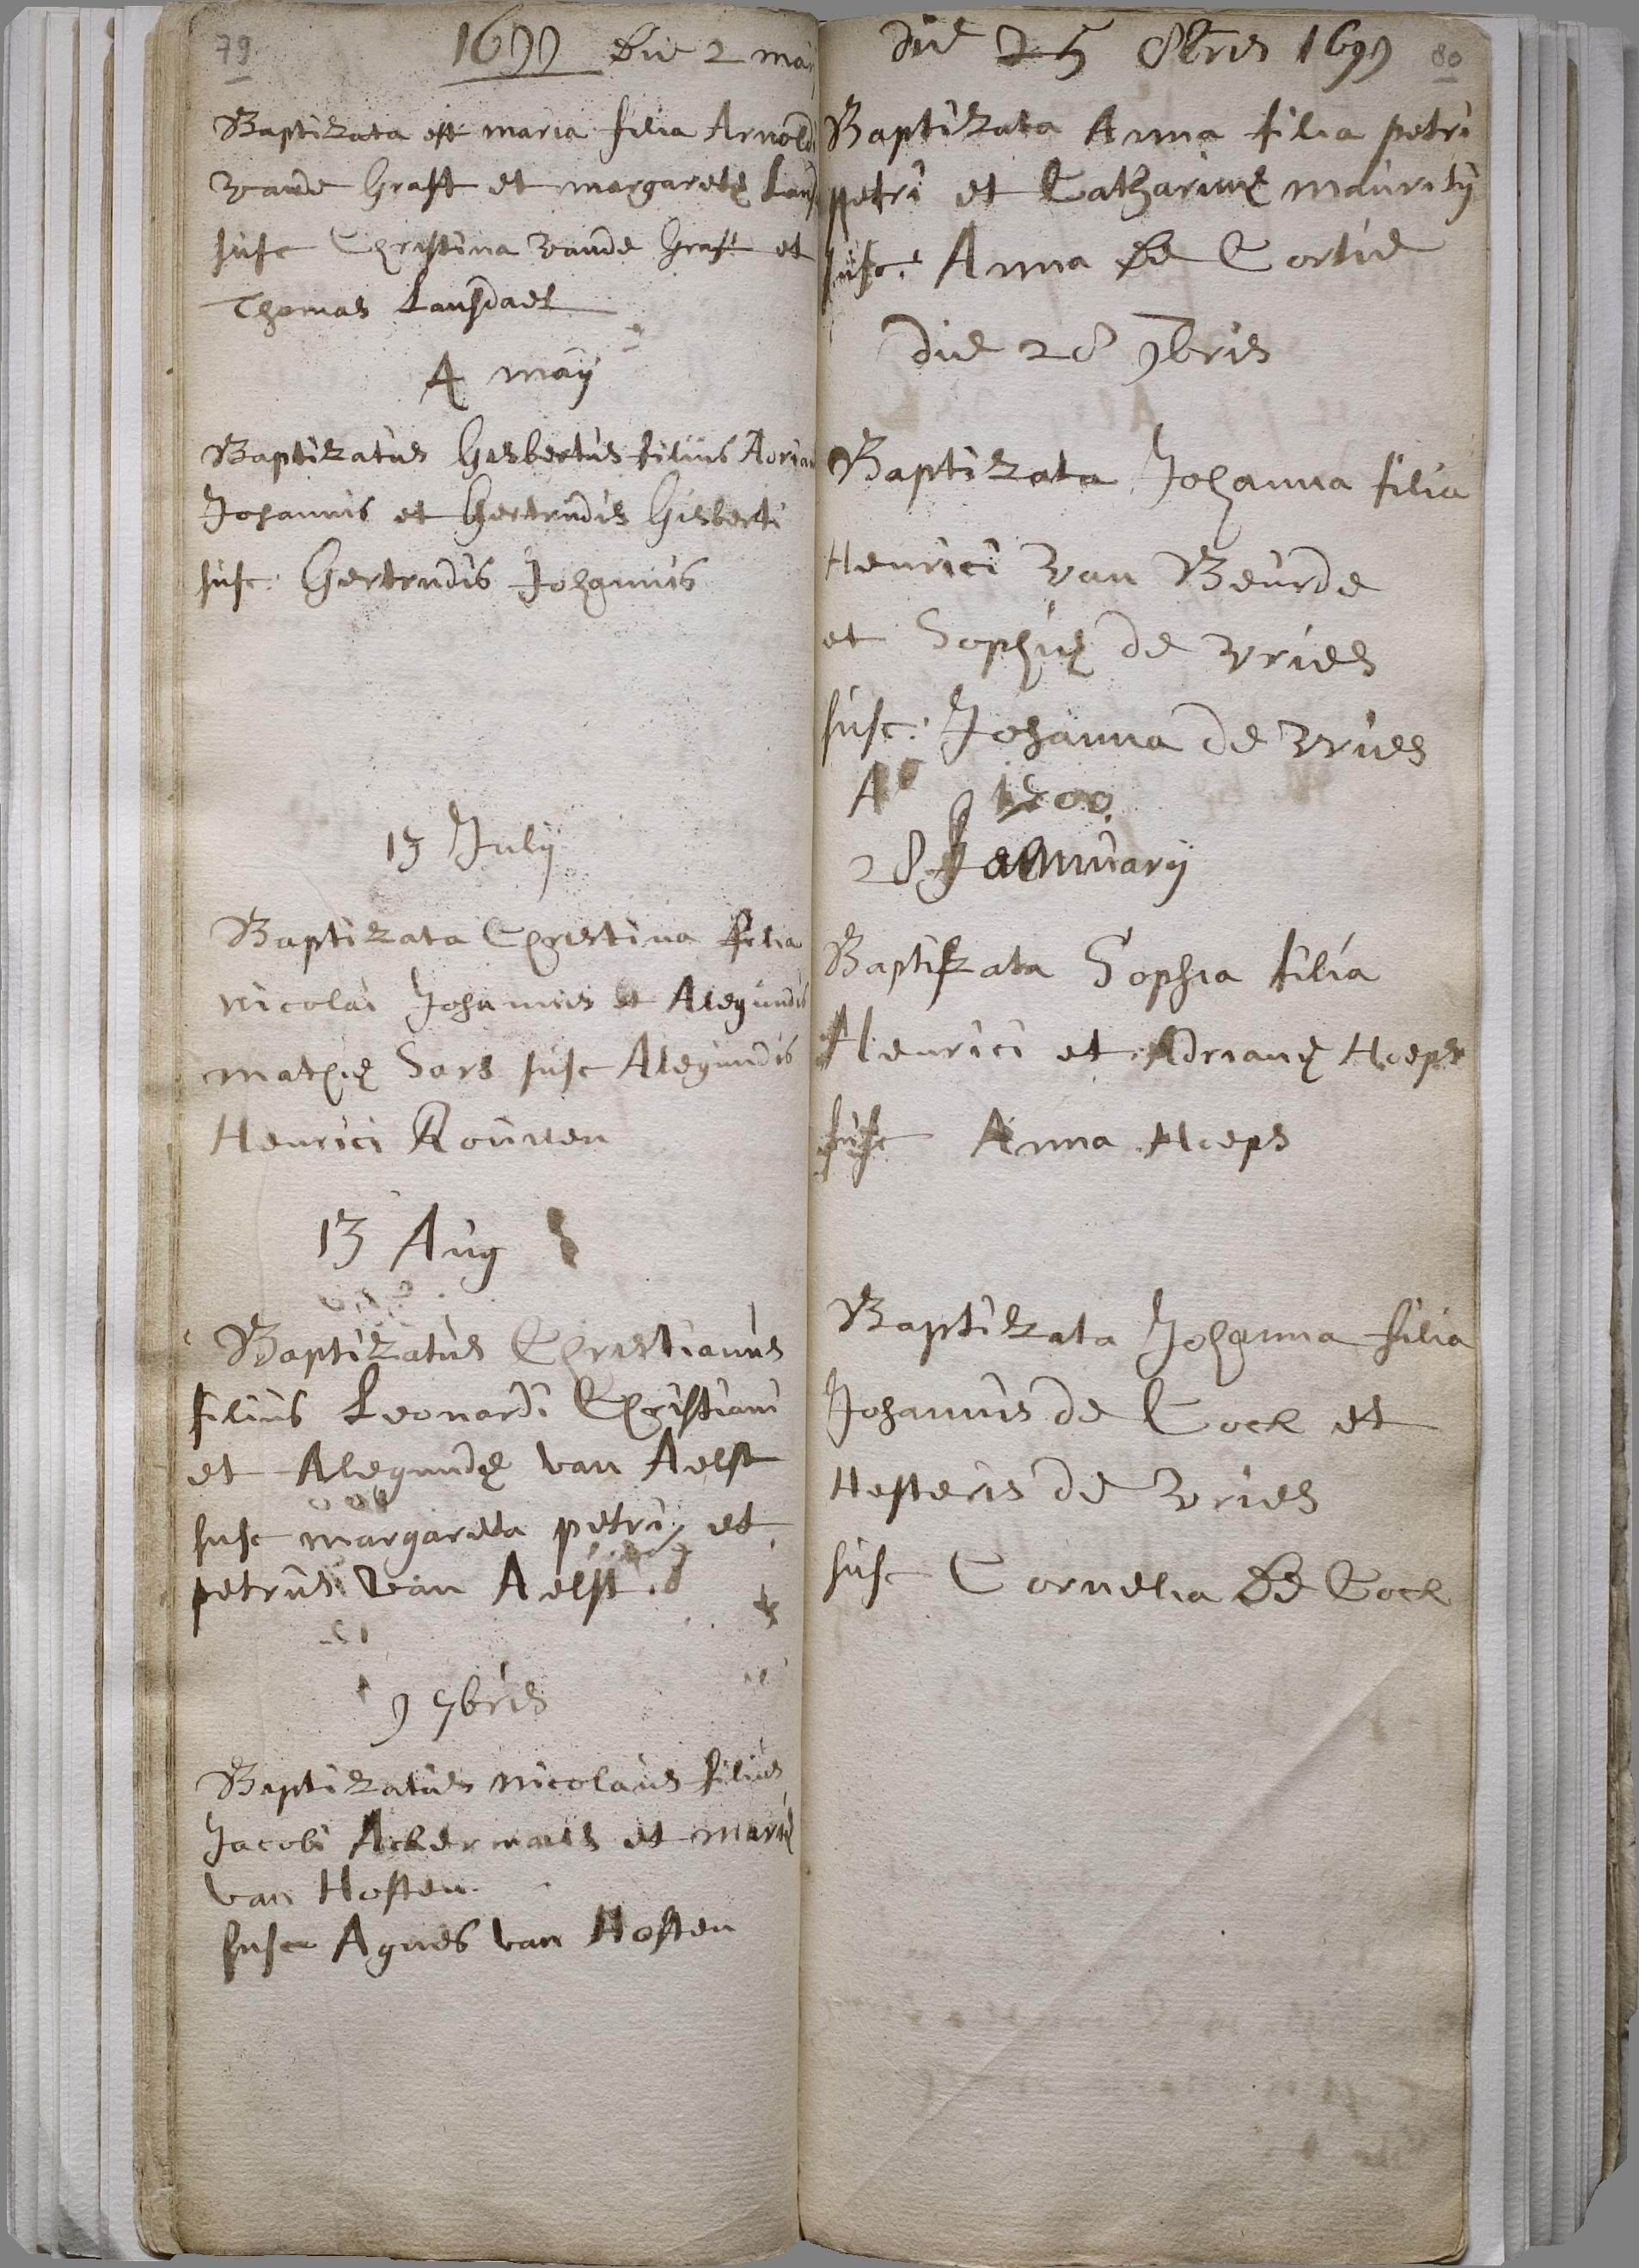 79
1699 Die 2 maij
Baptizata est maria filia Arnoldi
vande Graft et margaretę
susc Christina vande Graft et
Thomas Lansdaet
4 maij
Baptizatus Gisbertus filius Adrian
Johannis et Gertrudis Gisberti
susc: Gertrudis Johannis
13 July
Baptizata Christina filia
Nicolai Johannis et Alegundis
mathię Sars susc Alegundis
Henrici Rouwen
13 Aug
Baptizatus Christianus
filius Leonardi Christiani
et Alegundę van Aelst
susc margareta petri et
petrus van Aelst.
9 7bris
Baptizatus Nicolaus filius
Jacobi Ackermans et marię
van Hosten
susc Agnes van Hosten
80
die 25 8bris 1699
Baptizata Anna filia petri
petri et Catharinę mauritij
susc: Anna De Cortie
die 28 9bris
Baptizata Johanna filia
Henrici van Beurde
et Sophię de vries
susc: Johanna de vries
A° 1700
28 Januarij
Baptizata Sophia filia
Henrici et Adrianę Hoeps
susc Anna Hoeps
Baptizata Johanna filia
Johannis de Cock et
Hesteris de vries
susc Cornelia De Cock